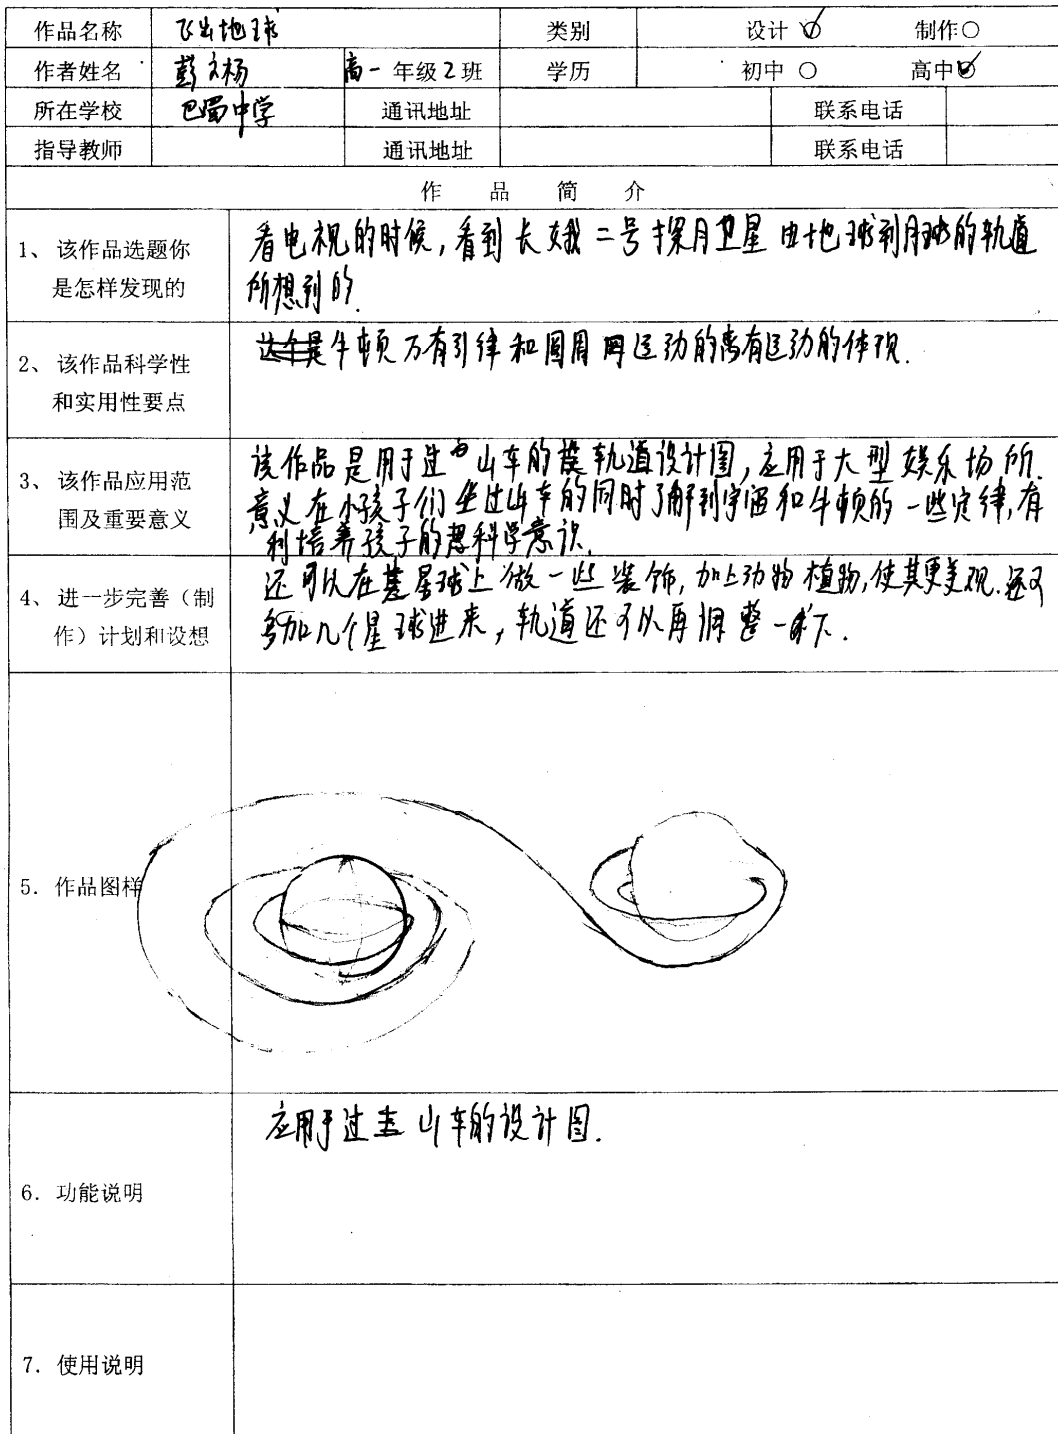 作品名称 飞出地球 类别 设计 ○ 制作○
作者姓名 彭文杨 高一 年级 2 班 学历 初中 ○ 高中○
所在学校 巴蜀中学 通讯地址 联系电话
指导教师 通讯地址 联系电话
作 品 简 介
1、 该作品选题你
是怎样发现的
看电视的时候,看到长娥二号探月卫星由地球到月球的轨道
所想到的.
2、 该作品科学性
和实用性要点
牛顿万有引律和圆周运动的离有运动的体现.
3、 该作品应用范
围及重要意义
该作品是用于过山车的轨道设计图,应用于大型娱乐场所.
意义在小孩子们坐过山车的同时了解到宇宙和牛顿的一些定律,有
利培养孩子的科学意识.
4、 进一步完善（制
作）计划和设想
还可以在星球上做一些装饰,加上动物植物,使其更美观.还可
多加几个星球进来,轨道还可以再调整一下.
5. 作品图样
6. 功能说明
应用于过山车的设计图.
7. 使用说明